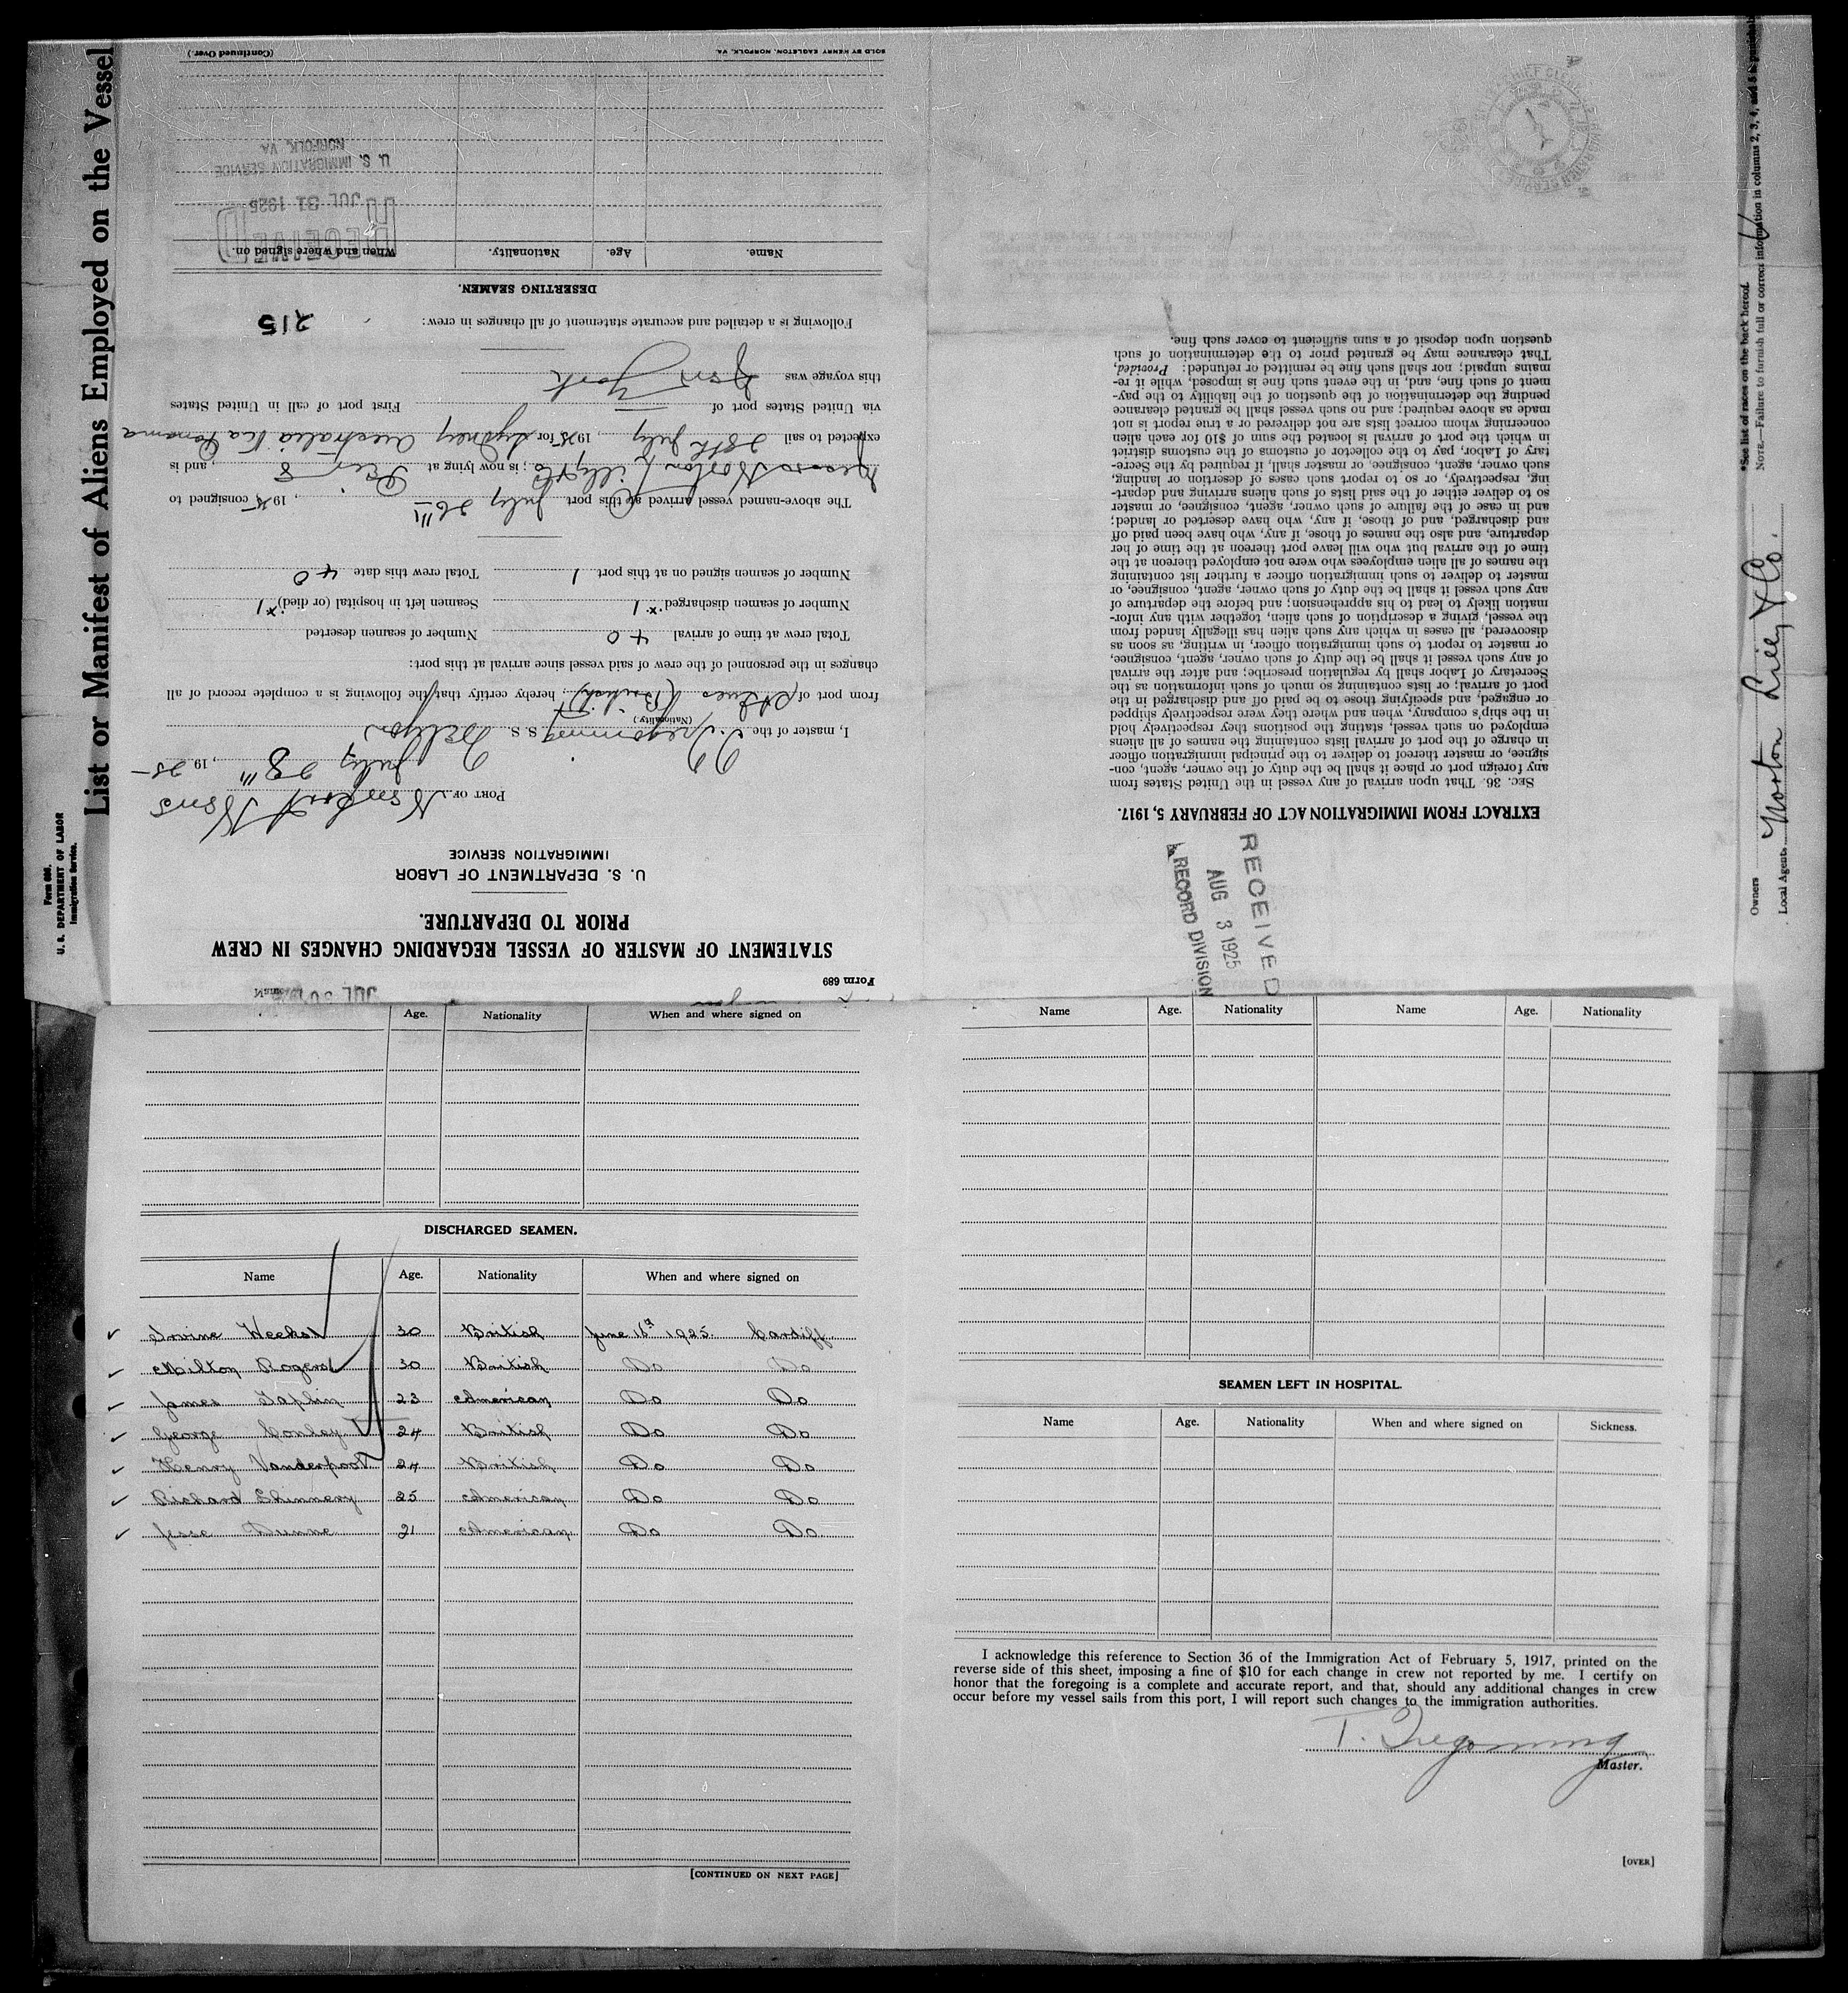 List or Manifest of Aliens Employed on the Vessel
Form 680.
U. S. DEPARTMENT OF LABOR
Immigration Service.
Form 689
STATEMENT OF MASTER OF VESSEL REGARDING CHANGES IN CREW
PRIOR TO DEPARTURE.
U. S. DEPARTMENT OF LABOR
IMMIGRATION SERVICE
PORT OF Newport News
July 28th, 1925
I, master of the S. S.
(Nationality)
from port of (British), hereby certify that the following is a complete record of all
changes in the personnel of the crew of said vessel since arrival at this port:
Total crew at time of arrival 40 Number of seamen deserted
Number of seamen discharged * 1 Seamen left in hospital (or died) * 1
Number of seamen signed on at this port. 1 Total crew this date 40
The above-named vessel arrived at this port July 26th, 1925 consigned to
Messrs Norton Lilly & Co; is now lying at Pier 8, and is
expected to sail 28th July, 1925 for Sydney Australia via Panama
via United States port of — First port of call in United States
this voyage was New York
Following is a detailed and accurate statement of all changes in crew:
215
DESERTING SEAMEN.
Name. Age. Nationality. When and where signed on.
RECEIVED
JUL 31 1925
U. S. IMMIGRATION SERVICE
NORFOLK, VA.
SOLD BY HENRY EAGLETON, NORFOLK, VA. (Continued Over.)
RECEIVED
AUG 3 1925
RECORD DIVISION
EXTRACT FROM IMMIGRATION ACT OF FEBRUARY 5, 1917.
SEC. 36. That upon arrival of any vessel in the United States from
any foreign port or place it shall be the duty of the owner, agent, con-
signee, or master thereof to deliver to the principal immigration officer
in charge of the port of arrival lists containing the names of all aliens
employed on such vessel, stating the positions they respectively hold
in the ship's company, when and where they were respectively shipped
or engaged, and specifying those to be paid off and discharged in the
port of arrival; or lists containing so much of such information as the
Secretary of Labor shall by regulation prescribe; and after the arrival
of any such vessel it shall be the duty of such owner, agent, consignee,
or master to report to such immigration officer, in writing, as soon as
discovered, all cases in which any such alien has illegally landed from
the vessel, giving a description of such alien, together with any infor-
mation likely to lead to his apprehension; and before the departure of
any such vessel it shall be the duty of such owner, agent, consignee, or
master to deliver to such immigration officer a further list containing
the names of all alien employees who were not employed thereon at the
time of the arrival but who will leave port thereon at the time of her
departure, and also the names of those, if any, who have been paid off
and discharged, and of those, if any, who have deserted or landed;
and in case of the failure of such owner, agent, consignee, or master
so to deliver either of the said lists of such aliens arriving and depart-
ing, respectively, or so to report such cases of desertion or landing,
such owner, agent, consignee, or master, shall, if required by the Secre-
tary of Labor, pay to the collector of customs of the customs district
in which the port of arrival is located the sum of $10 for each alien
concerning whom correct lists are not delivered or a true report is not
made as above required; and no such vessel shall be granted clearance
pending the determination of the question of the liability to the pay-
ment of such fine, and, in the event such fine is imposed, while it re-
mains unpaid; nor shall such fine be remitted or refunded: Provided,
That clearance may be granted prior to the determination of such
question upon deposit of a sum sufficient to cover such fine.
Owners
Local Agents Norton Lilly & Co.
*See list of races on the back hereof.
NOTE.—Failure to furnish full or correct information in columns 2, 3, 4, and 5 is punishable
Age. Nationality When and where signed on
DISCHARGED SEAMEN.
Name Age. Nationality When and where signed on
Irvine Weekes 30 British June 16th 1925. Cardiff
Milton Rogers 30 British Do Do
James Taplin 23 American Do Do
George Conley 24 British Do Do
Henry Vanderpool 24 British Do Do
Richard Chinnery 25 American Do Do
Jesse Dunne 21 American Do Do
[CONTINUED ON NEXT PAGE]
Name Age. Nationality Name Age. Nationality
SEAMEN LEFT IN HOSPITAL.
Name Age. Nationality When and where signed on Sickness.
I acknowledge this reference to Section 36 of the Immigration Act of February 5, 1917, printed on the
reverse side of this sheet, imposing a fine of $10 for each change in crew not reported by me. I certify on
honor that the foregoing is a complete and accurate report, and that, should any additional changes in crew
occur before my vessel sails from this port, I will report such changes to the immigration authorities.
T. Tregonning
Master.
[OVER]